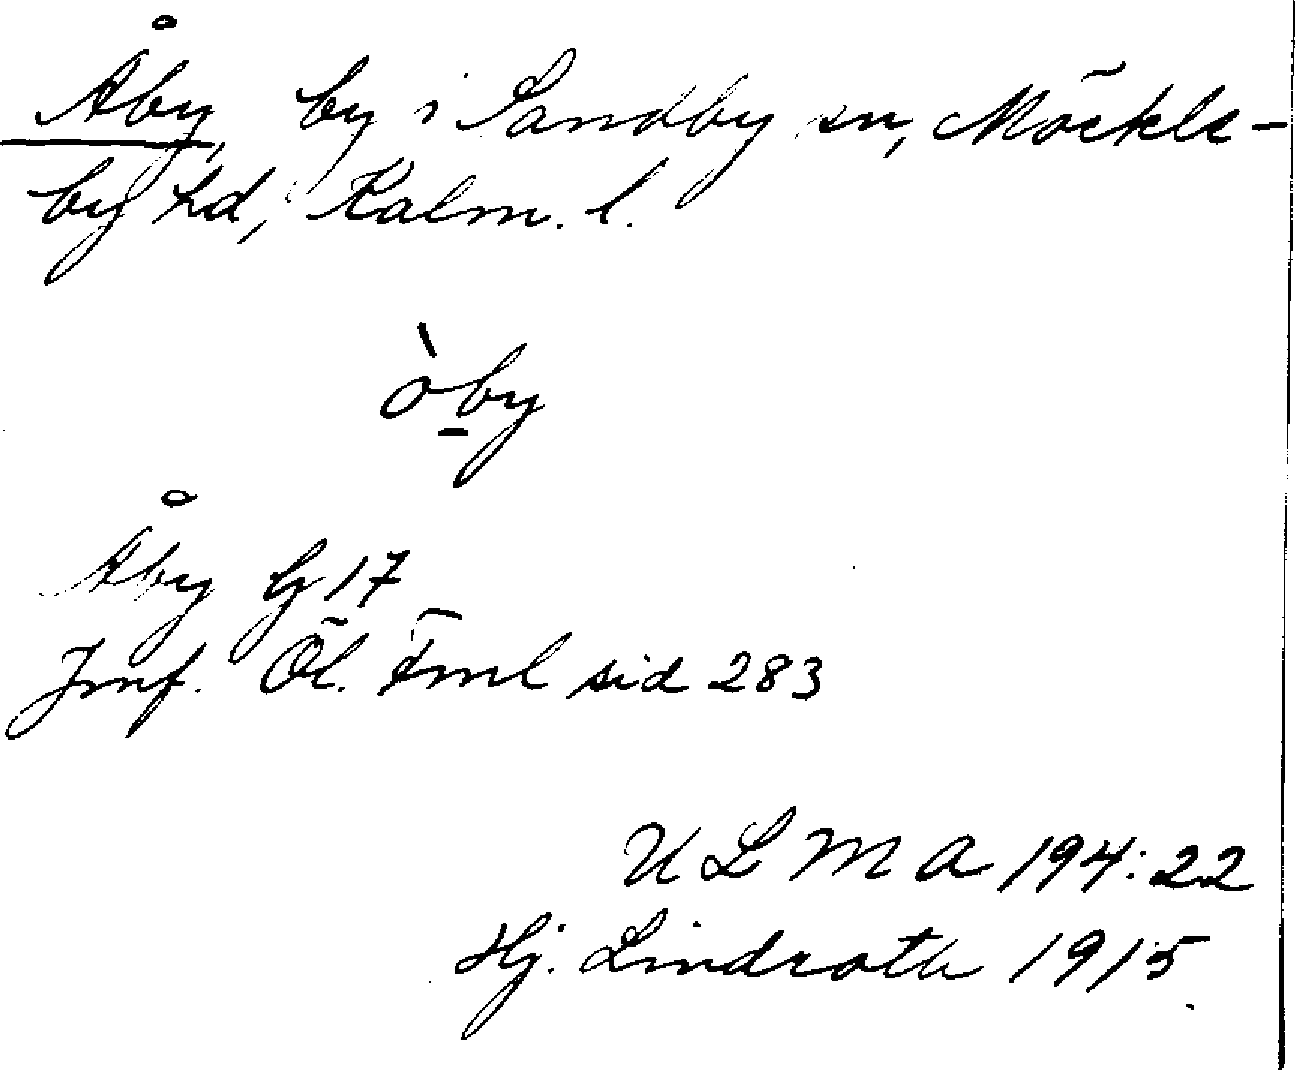 Åby, by i Sandby sn, Möckle-
by hd, Kalm. l.
òby
Åby G 17
Jmf. Öl. Fml sid 283
ULMA 194:22
Hj. Lindroth 1915.